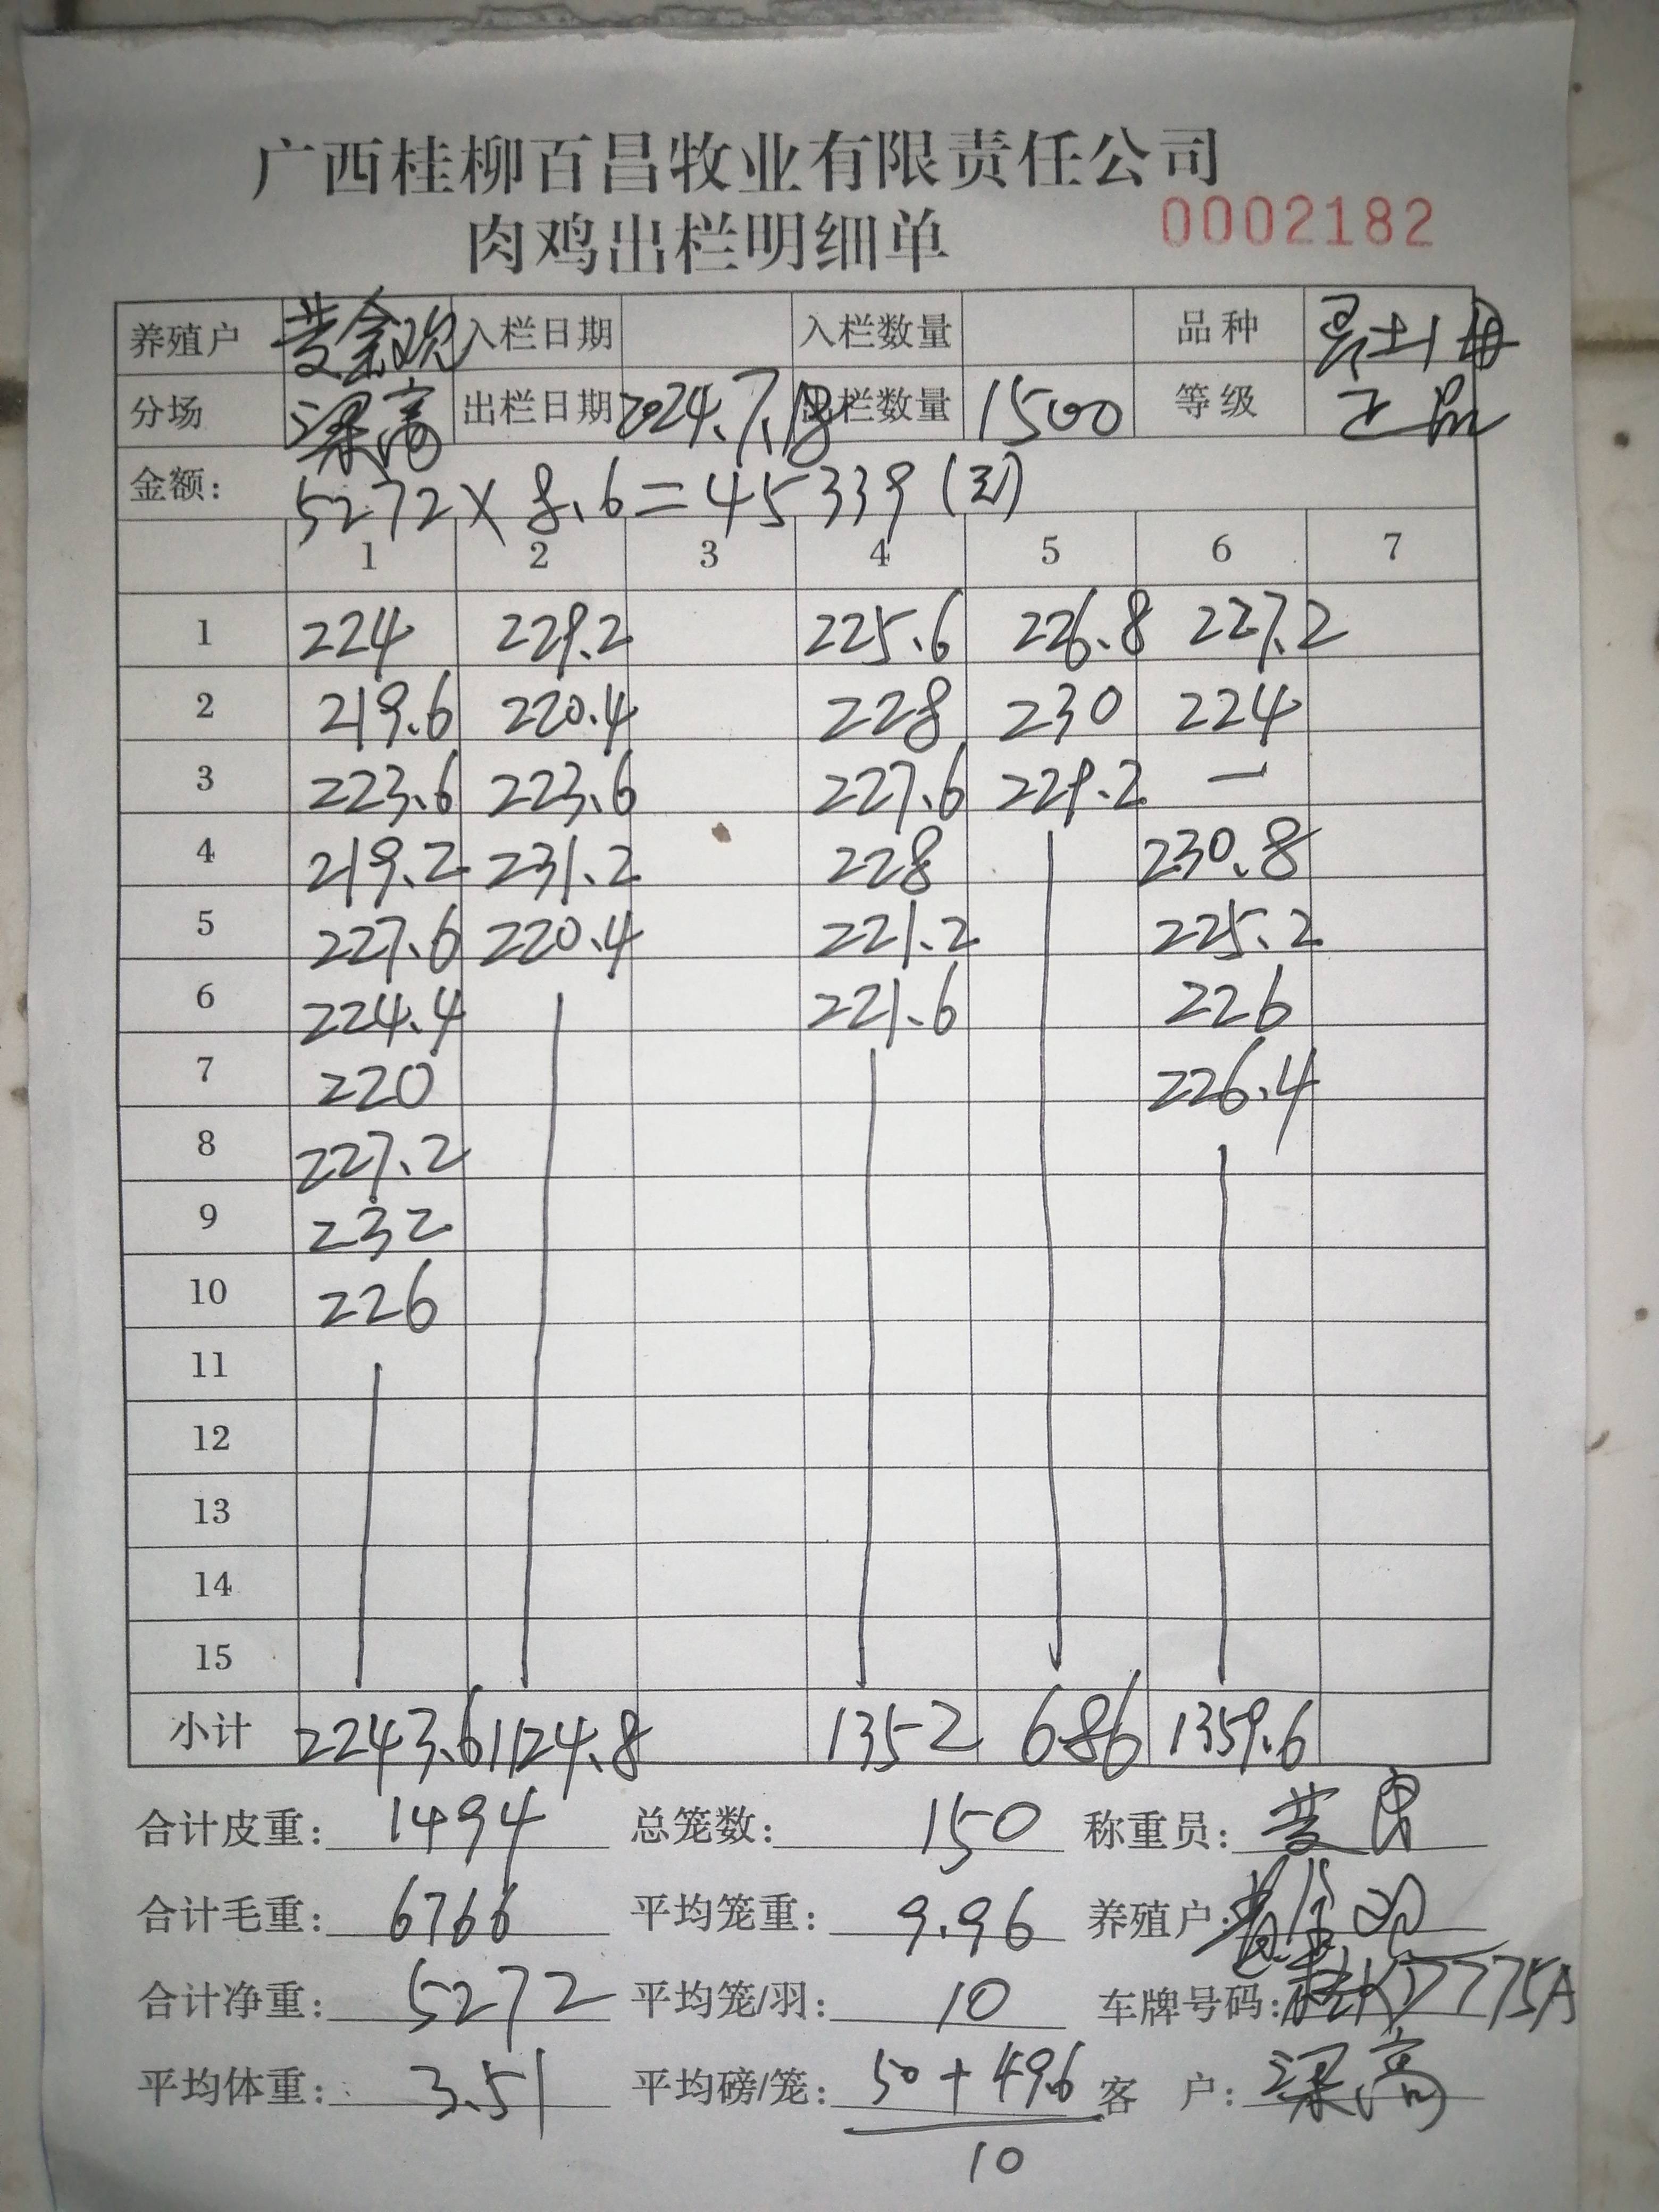 广西桂柳百昌牧业有限责任公司
肉鸡出栏明细单 0002182
养殖户 黄金欢 入栏日期 入栏数量 品种 土1母
分场 梁高 出栏日期 2024.7.18 出栏数量 1500 等级 正品
金额: 5272×8.6=45339(元)
1 2 3 4 5 6 7
1 224 229.2 225.6 226.8 227.2
2 219.6 220.4 228 230 224
3 223.6 223.6 227.6 229.2 一
4 219.2 231.2 228 230.8
5 227.6 220.4 221.2 225.2
6 224.4 221.6 226
7 220 226.4
8 227.2
9 232
10 226
11
12
13
14
15
小计 2243.6 1124.8 1352 686 1359.6
合计皮重: 1494 总笼数: 150 称重员: 黄
合计毛重: 6766 平均笼重: 9.96 养殖户:
合计净重: 5272 平均笼/羽: 10 车牌号码: 桂KD775A
平均体重: 3.51 平均磅/笼: 50+49.6 客 户: 梁高
10